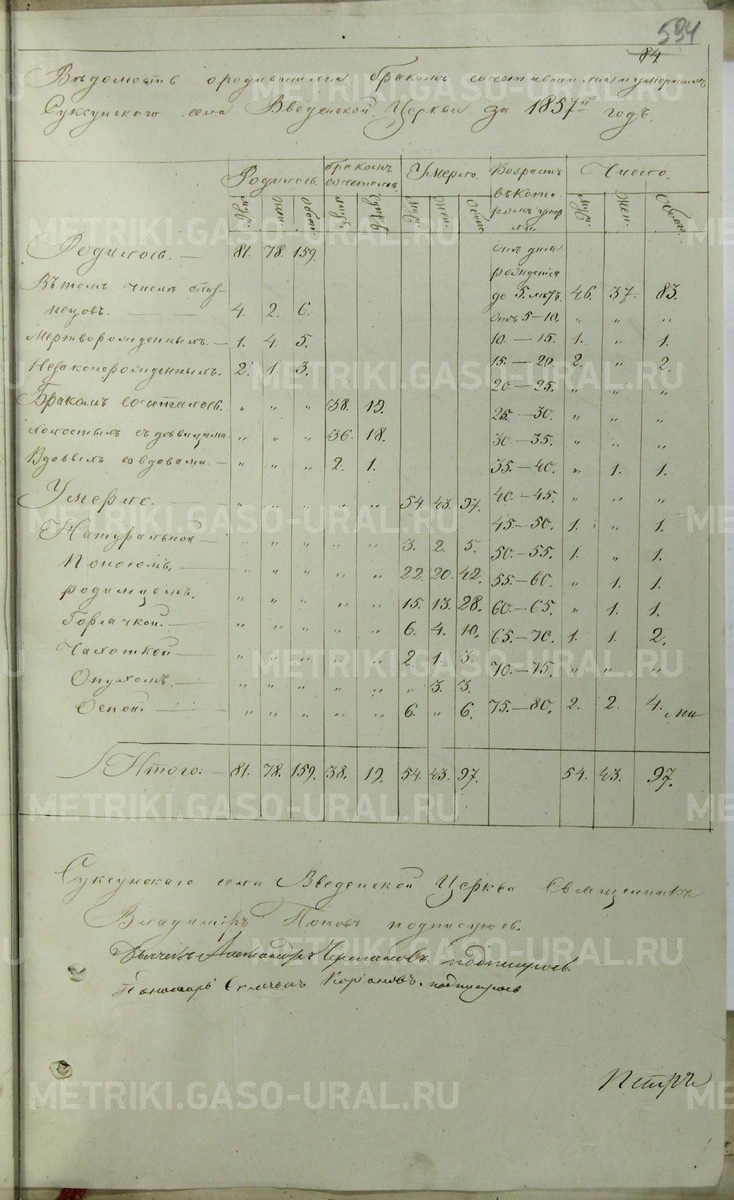 594
84
Вѣдомость о родившихся бракомъ сочетавшихся и умершихъ
Суксунскаго села Введенской Церкви за 1857й годъ.
Родилось. бракомъ сочеталось. Умерло. Возрастъ въ которомъ Число.
муж. жен. обоего муж. чет. муж. жен. обоего муж. жен. Обоего
Родилось. — 81. 78. 159. отъ дня рожденія
Въ томъ числѣ близнецовъ. — 4. 2. 6. до 5 лѣтъ. 46. 37. 83.
отъ 5–10. „ „ „
Мертворожденныхъ. — 1. 4. 5. 10–15. 1. „ 1.
Незаконорожденныхъ. 2. 1. 3. 15–20. 2. „ 2.
20–25. „ „ „
Бракомъ сочеталось. „ „ „ 38. 19. 25–30. „ „ „
Холостыхъ съ дѣвицами. „ „ „ 36. 18. 30–35. „ „ „
Вдовыхъ со вдовами. — „ „ „ 2. 1. 35–40. „ 1. 1.
Умерло. — „ „ „ „ „ 54. 43. 97. 40–45. „ „ „
45–50. 1. „ 1.
Натуральной — „ „ „ „ „ 3. 2. 5. 50–55. 1. „ 1.
Поносомъ. „ „ „ „ „ 22. 20. 42. 55–60. „ 1. 1.
родимцемъ. „ „ „ „ „ 15. 13. 28. 60–65. „ 1. 1.
Горячкой. — „ „ „ „ „ 6. 4. 10. 65–70. 1. 1. 2.
Чахоткой — „ „ „ „ „ 2. 1. 3. 70–75. „ „ „
Опухомъ. — „ „ „ „ „ „ 3. 3.
Оспой. — „ „ „ „ „ 6. „ 6. 75–80. 2. 2. 4.
Итого. — 81. 78. 159. 38. 19. 54. 43. 97. 54. 43. 97.
Суксунскаго села Введенской Церкви Священникъ
Владиміръ Поповъ подписуюсь.
Дьячекъ Александръ подписуюсь.
Пономарь подписуюсь
Петръ
METRIKI.GASO-URAL.RU